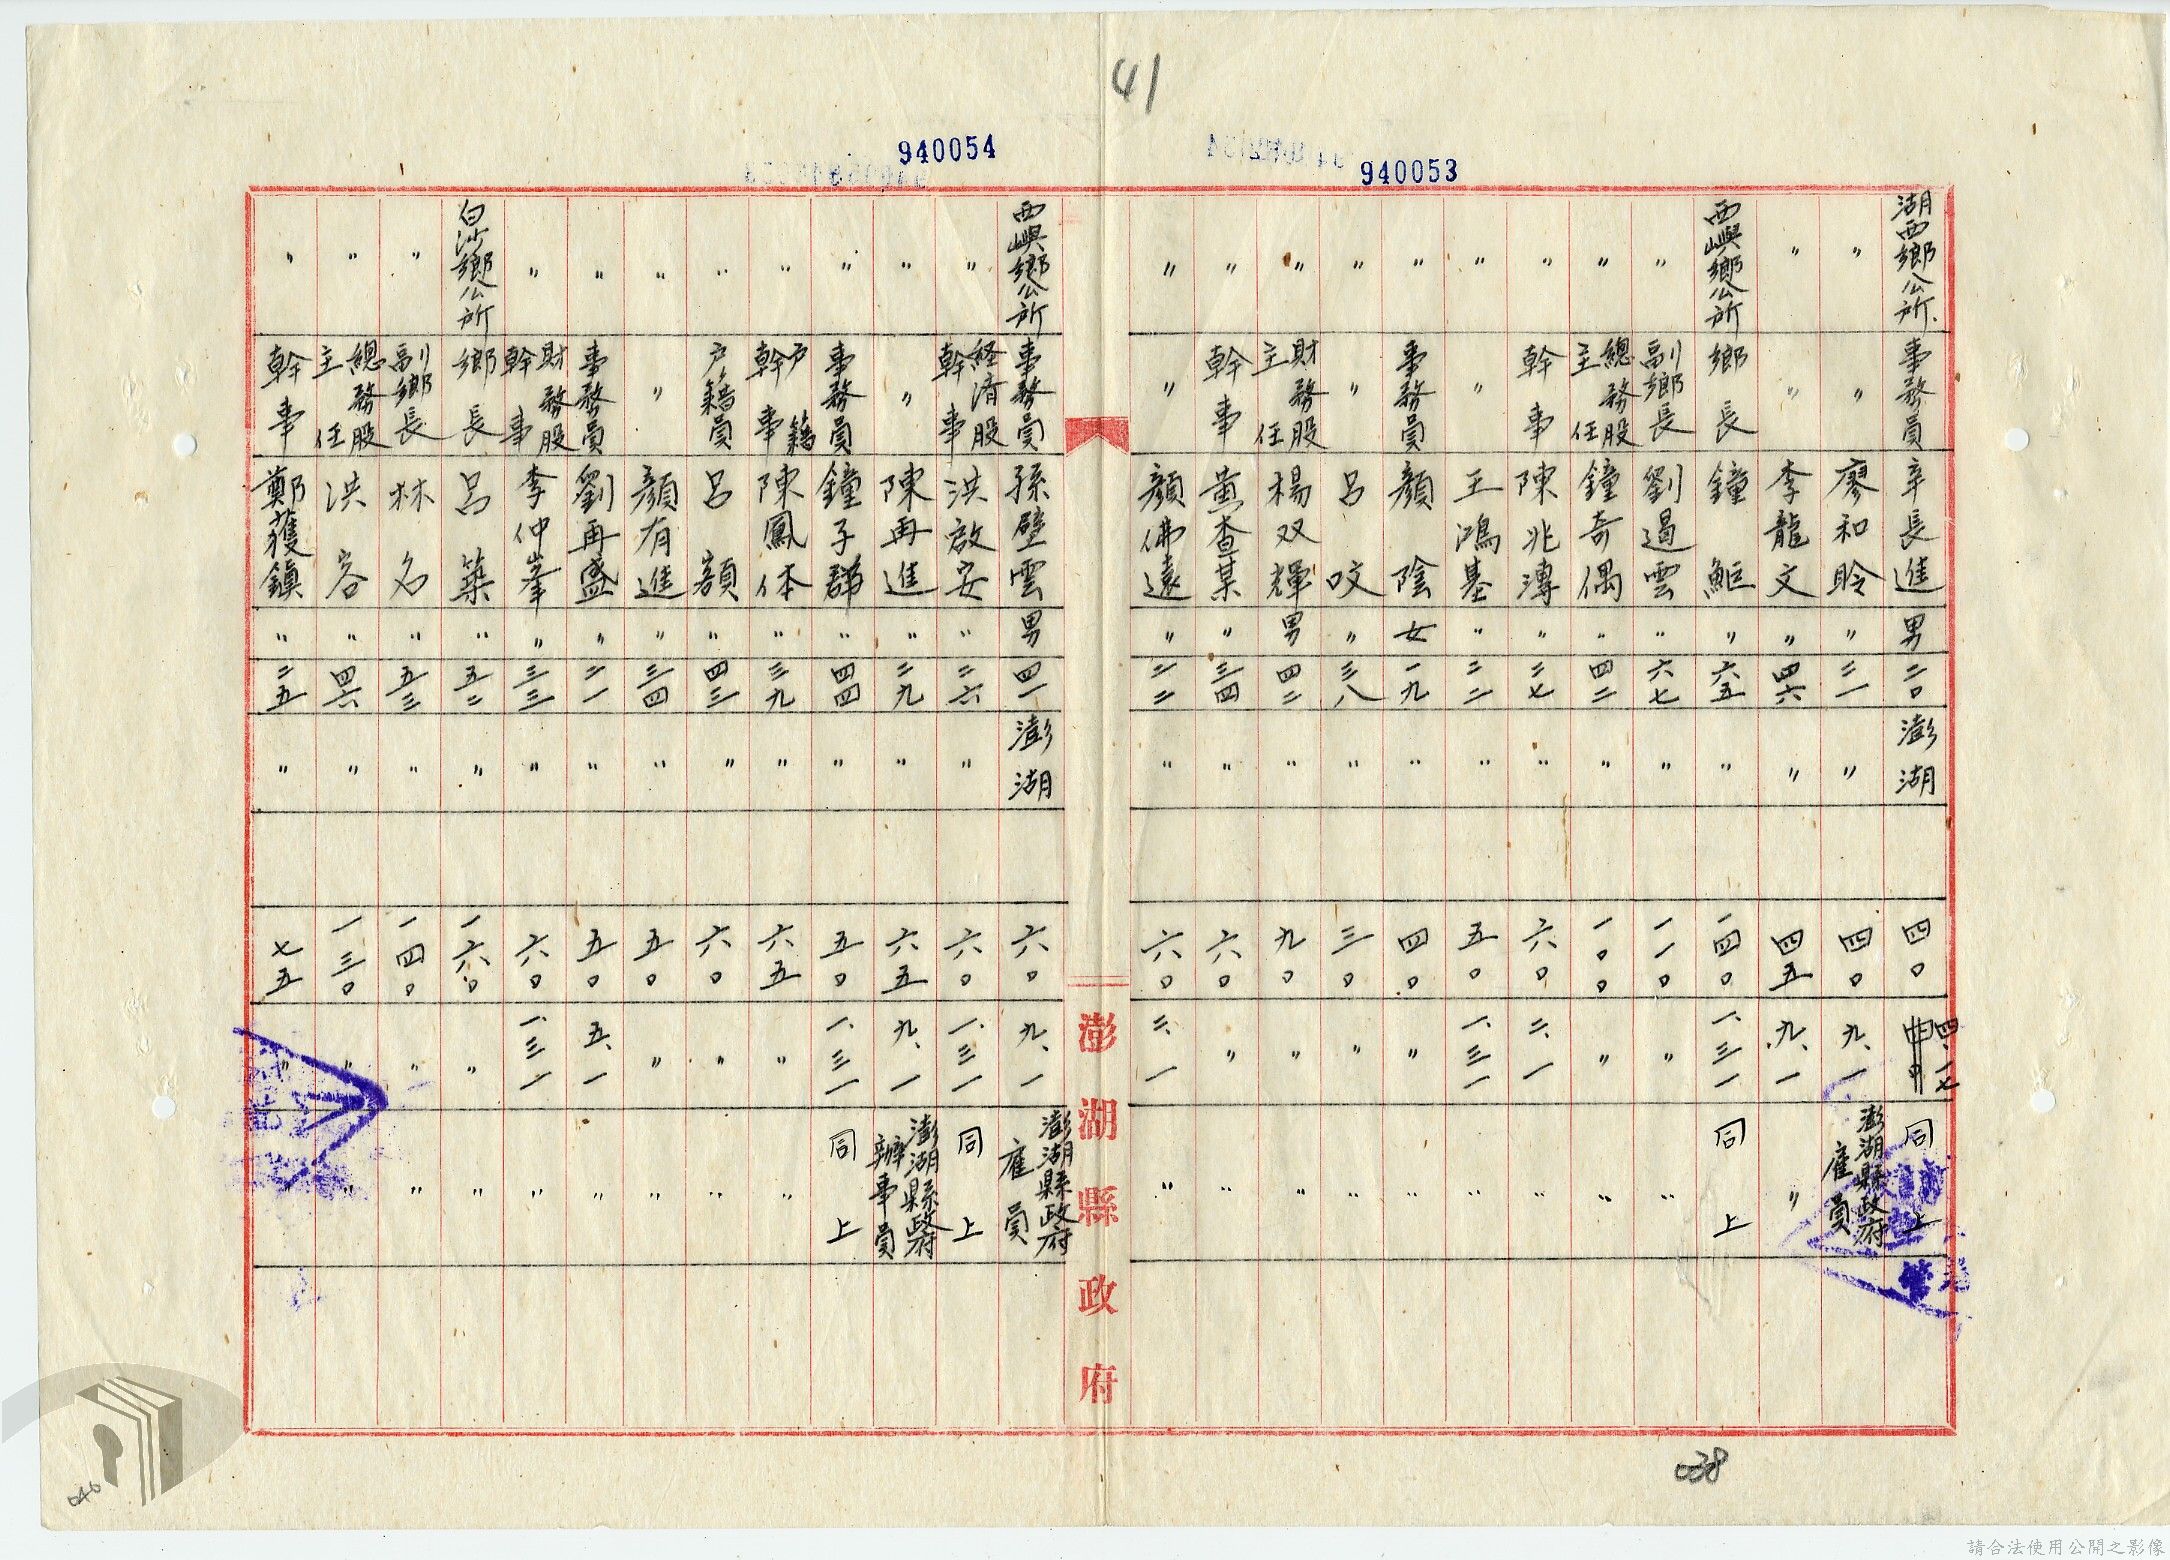 41
940053
940054
湖西鄉公所 事務員 辛長進 男 二〇 澎湖 四〇 四、一七 同上
〃 〃 廖和聆 〃 三一 〃 四〇 九、一 澎湖縣政府雇員
〃 〃 李龍文 〃 四六 〃 四五 九、一 〃
西嶼鄉公所 鄉長 鐘𩵱 〃 六五 〃 一四〇 一、三一 同上
〃 副鄉長 劉過雲 〃 六七 〃 一一〇 〃 〃
〃 總務股主任 鐘奇偶 〃 四二 〃 一〇〇 〃 〃
〃 幹事 陳兆溥 〃 二七 〃 六〇 二、一 〃
〃 〃 王鴻基 〃 二二 〃 五〇 一、三一 〃
〃 事務員 顏陰 女 一九 〃 四〇 〃 〃
〃 〃 呂咬 〃 三八 〃 三〇 〃 〃
〃 財務股主任 楊双輝 男 四二 〃 九〇 〃 〃
〃 幹事 黃查某 〃 三四 〃 六〇 〃 〃
〃 〃 顏佛遠 〃 二二 〃 六〇 二、一 〃
澎湖縣政府
西嶼鄉公所 事務員 孫壁雲 男 四一 澎湖 六〇 九、一 澎湖縣政府雇員
〃 経済股幹事 洪啟安 〃 二六 〃 六〇 一、三一 同上
〃 〃 陳再進 〃 二九 〃 六五 九、一 澎湖縣政府辦事員
〃 事務員 鐘子郡 〃 四四 〃 五〇 一、三一 同上
〃 戶籍幹事 陳鳳体 〃 三九 〃 六五 〃 〃
〃 戶籍員 呂額 〃 四三 〃 六〇 〃 〃
〃 〃 顏有進 〃 三四 〃 五〇 〃 〃
〃 事務員 劉再盛 〃 二一 〃 五〇 五、一 〃
〃 財務股幹事 李仲峯 〃 三三 〃 六〇 一、三一 〃
白沙鄉公所 鄉長 呂築 〃 五二 〃 一六〇 〃 〃
〃 副鄉長 林名 〃 五三 〃 一四〇 〃 〃
〃 總務股主任 洪容 〃 四六 〃 一三〇 〃 〃
〃 幹事 鄭獲鎮 〃 二五 〃 七五 〃 〃
038
040
請合法使用公開之影像